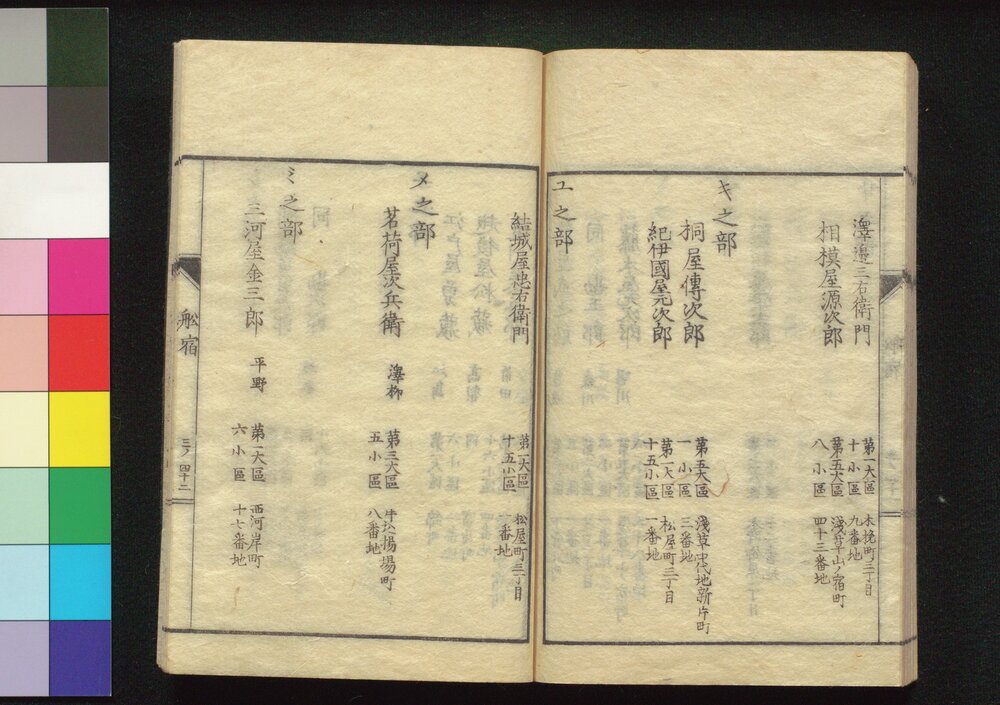 澤邊三右衛門 第一大區十小區 木挽町三丁目九番地
相模屋源次郎 第五大區八小區 淺草山ノ宿町四十三番地
キ之部
桐屋傳次郎 第五大區一小區 淺草代地新片町三番地
紀伊國屋元次郎 第一大區十五小區 松屋町三丁目一番地
ユ之部
結城屋忠右衛門 第一大區十五小區 松屋町三丁目一番地
メ之部
茗荷屋次兵衛 澤柳 第三大區五小區 牛込揚場町八番地
ミ之部
三河屋金三郎 平野 第一大區六小區 西河岸町十七番地
舩宿
三ノ四十二